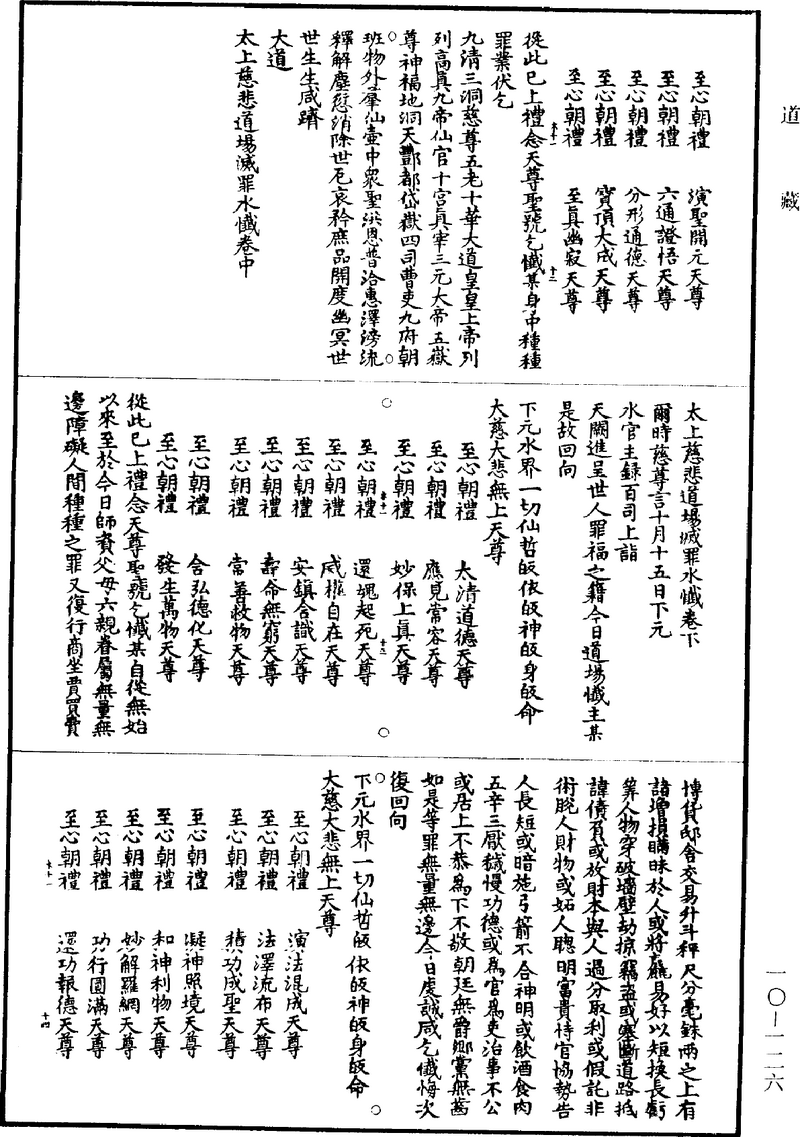 道藏
至心朝禮 演聖開元天尊
至心朝禮 六通證悟天尊
至心朝禮 分形通德天尊
至心朝禮 寶頂大成天尊
至心朝禮 至真幽寂天尊
從此已上禮念天尊聖號乞懺某身中種種
罪業伏乞
九清三洞慈尊五老十華大道皇皇上帝列
列高真九帝仙官十宮真宰三元大帝五嶽
尊神福地洞天酆都岱嶽四司曹吏九府朝
班物外羣仙壺中衆聖洪恩普洽惠澤滂流
釋解塵愆消除世厄哀矜庶品開度幽冥世
世生生咸躋
大道
太上慈悲道場滅罪水懺卷中
太上慈悲道場滅罪水懺卷下
爾時慈尊言十月十五日下元
水官主録百司上詣
天闕進呈世人罪福之籍今日道場懺主某
是故回向
下元水界一切仙哲皈依皈神皈身皈命
大慈大悲無上天尊
至心朝禮 太清道德天尊
至心朝禮 應見常容天尊
至心朝禮 妙保上真天尊
至心朝禮 還魂起死天尊
至心朝禮 威權自在天尊
至心朝禮 安鎮含識天尊
至心朝禮 壽命無窮天尊
至心朝禮 常善救物天尊
至心朝禮 含弘德化天尊
至心朝禮 發生萬物天尊
從此已上禮念天尊聖號乞懺某自從無始
以來至於今日師資父母六親眷屬無量無
邊障礙人間種種之罪又復行商坐賈買賣
博貨邸舍交易升斗秤尺分毫銖兩之上有
諸增損瞞昧於人或將麄易好以短換長虧
筭人物穿破墻壁劫掠竊盗或塞斷道路抵
諱債負或放財本與人過分取利或假託非
術脫人財物或妬人聰明富貴恃官協勢告
人長短或暗施弓箭不合神明或飲酒食肉
五辛三厭穢慢功德或為官為吏治事不公
或居上不恭為下不敬朝廷無爵鄉黨無齒
如是等罪無量無邊今日虔誠咸乞懺悔次
復回向
下元水界一切仙哲皈依皈神皈身皈命
大慈大悲無上天尊
至心朝禮 演法混成天尊
至心朝禮 法澤流布天尊
至心朝禮 積功成聖天尊
至心朝禮 凝神照境天尊
至心朝禮 和神利物天尊
至心朝禮 妙解羅網天尊
至心朝禮 功行圓滿天尊
至心朝禮 還功報德天尊
一〇—一二六